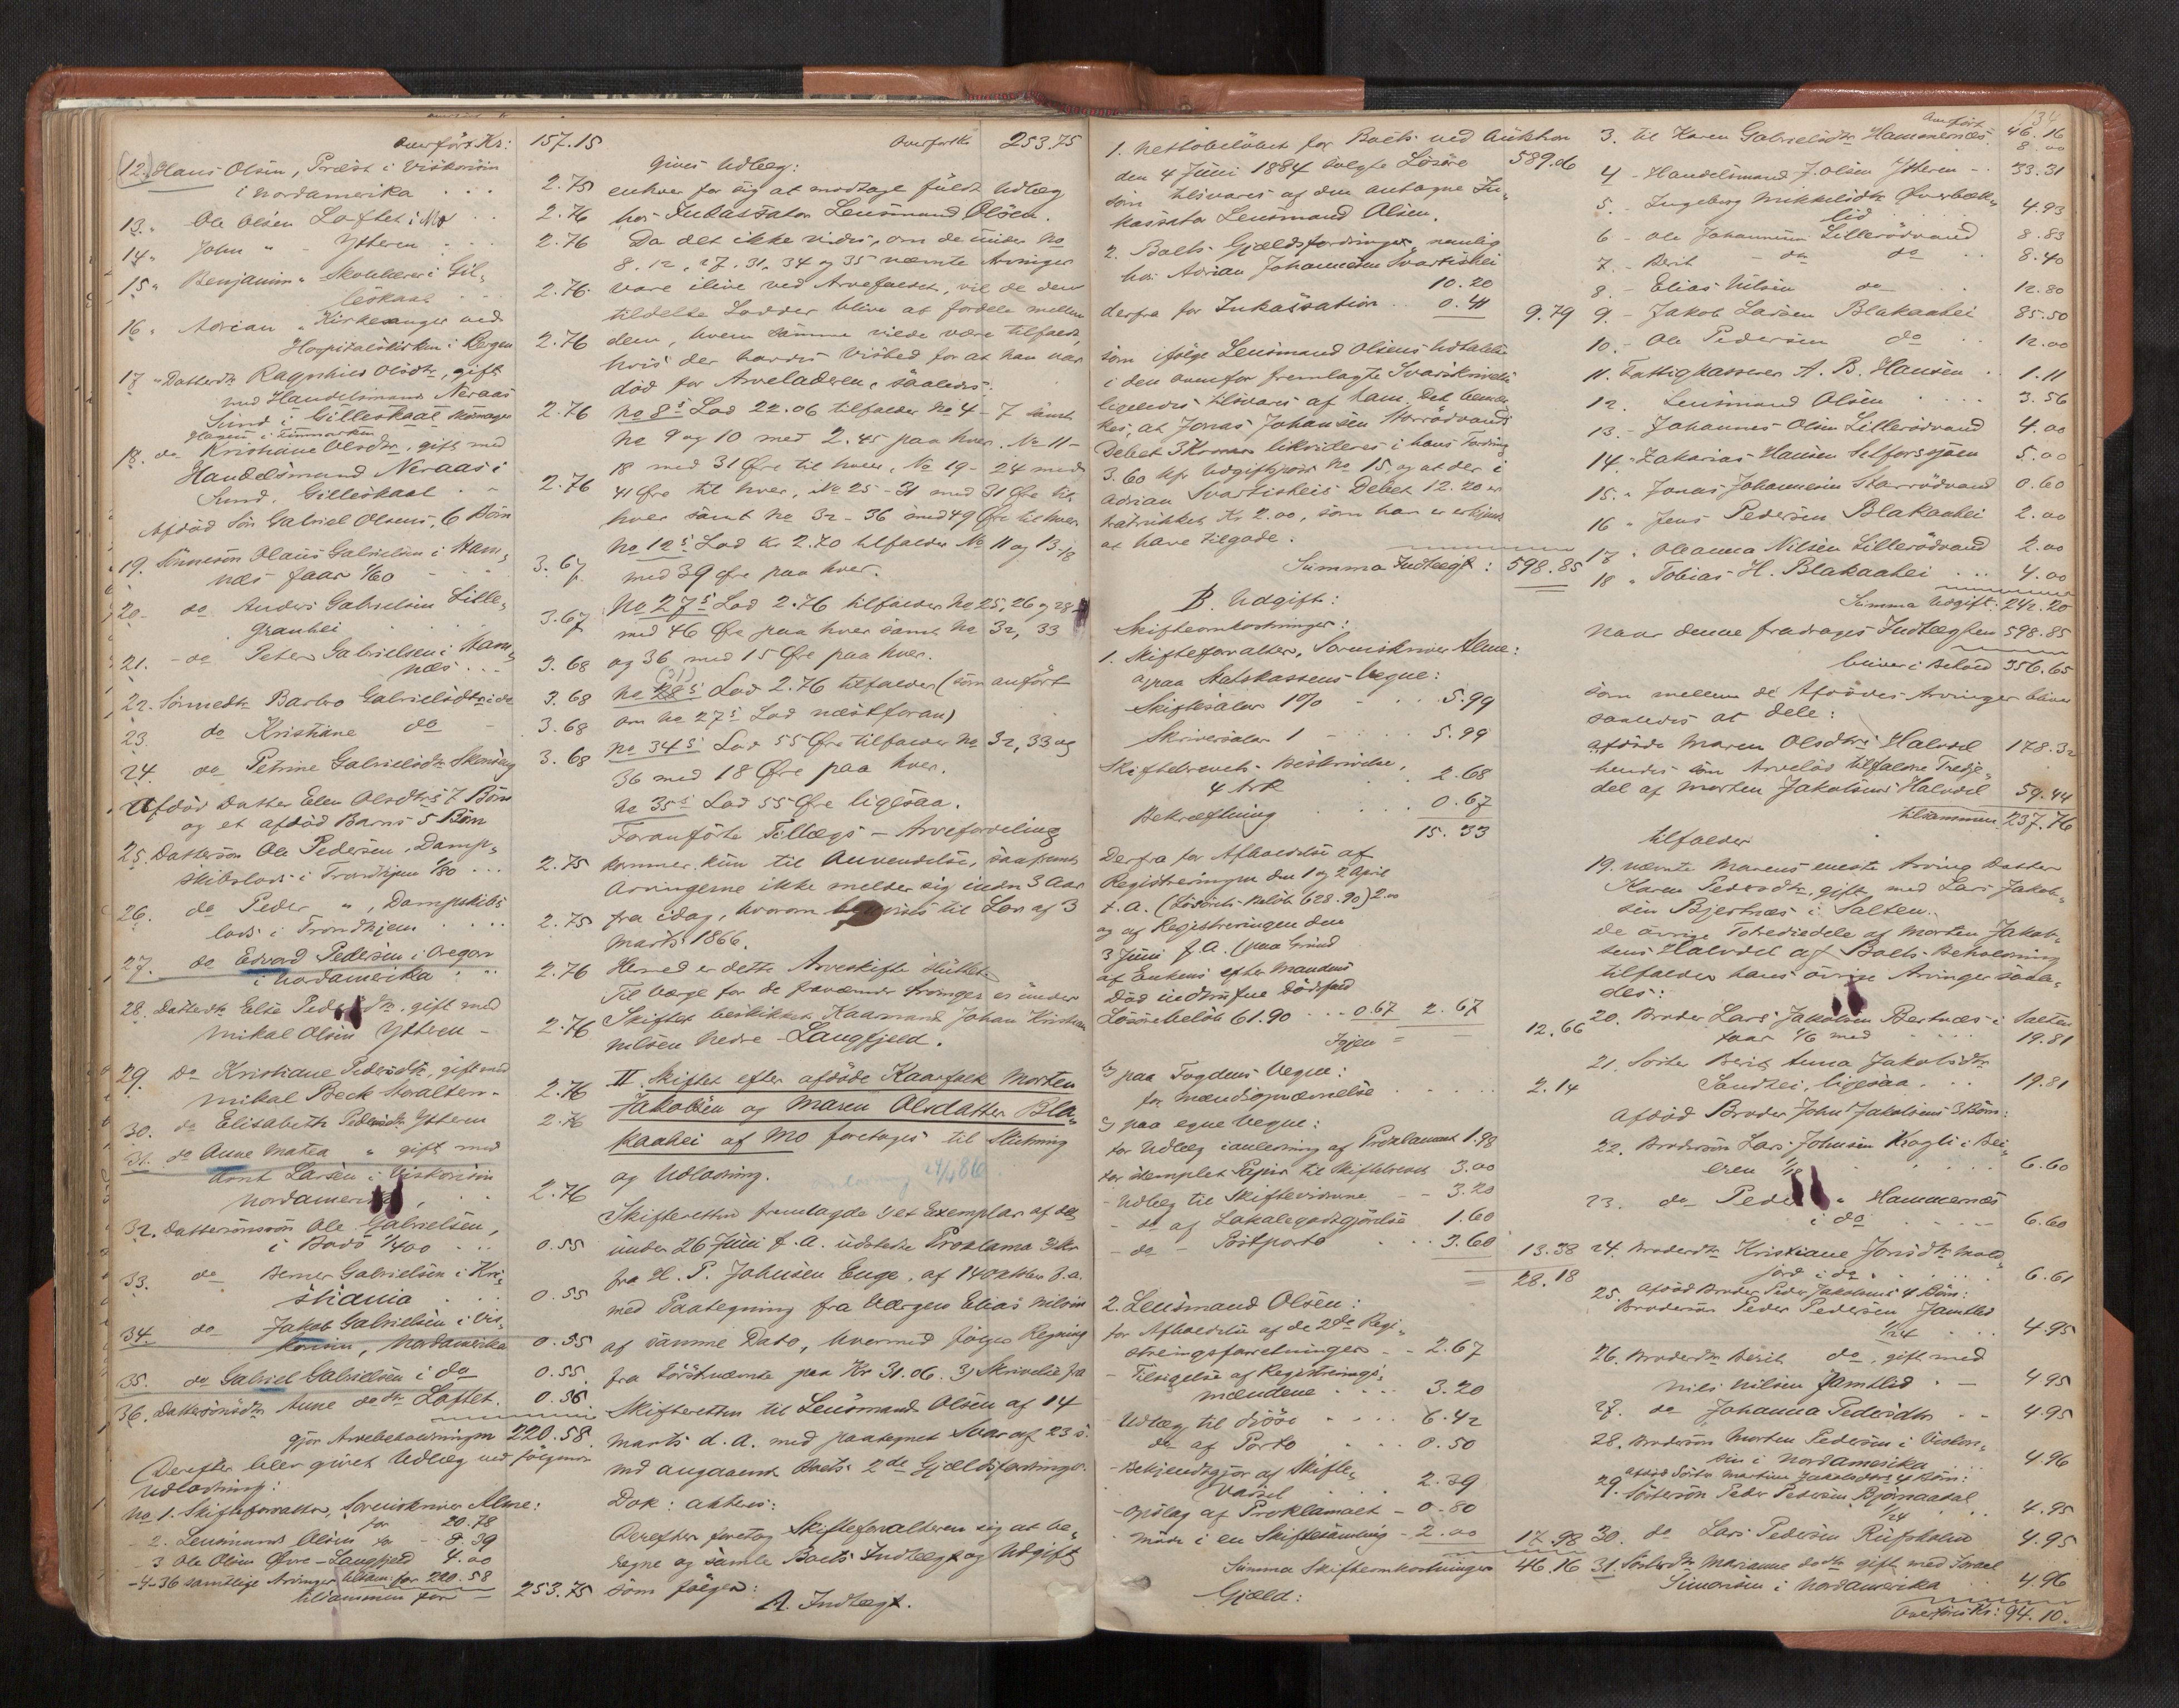 Overført Kr: 157.15
12. Hans Olsen, Præst i Viskonsin
i Nordamerika . . . 2.75
13. Ole Olsen Loftet i Mo . . 2.76
14. John " - Ytteren . . . 2.76
15. Benjamin " Skolelærer i Gil-
leskaal . . . 2.76
16. Adrian " Kirkesanger ved
Hospitalskirken i Bergen 2.76
17. Datterdtr Ragnhild Olsdtr, gift
med Handelsmand Neraas
Sund i Gilleskaal 2.76
18. do Kristiane Olsdtr, gift med
Handelsmand Neraas i
Sund, Gilleskaal . . 2.76
Afdød Søn Gabriel Olsens, 6 Børn
19. Sønnesøn Olaus Gabrielsen i Ham-
næs faar 1/60 3.67
20. do Anders Gabrielsen Lille-
Granhei . . . 3.67
21. - do Peter Gabrielsen i Ham-
næs . . . 3.68
22. Sønnedtr Barbro Gabrielsdtr i do 3.68
23. do Kristiane do 3.68
24. do Petrine Gabrielsdtr 3.68
Afdød Datter Elen Olsdtrs 7 Børn
og et afdød Barns 5 Børn
25. Dattersøn Ole Pedersen, Damp-
skibslods i Trondhjem 1/80 . . . 2.75
26. do Peder ", Dampskibs
lods i Trondhjem . . . . 2.75
27. do Edvard Pedersen i Oregon
i Nordamerika . . . 2.76
28. Datterdtr Else Pedersdtr, gift med
Mikal Olsen Ytteren - 2.76
29. Do Kristiane Pedersdtr, gift med
Mikal Beck Storalteren - 2.76
30. do Elisabeth Pedersdtr Ytteren 2.76
31. do Anne Matea " gift med
Arnt Larsen i Viskonsin
Nordamerika, . . 2.76
32. Dattersønssøn Ole Gabrielsen,
i Bodø 1/400 . . . 0.55
33. do Berner Gabrielsen i Kri-
stiania . . . 0.55
34. do Jakob Gabrielsen i Vis-
konsin, Nordamerika 0.55
35. do Gabriel Gabrielsen i do 0.55
36. Dattersønsdtr Anne do dtr Loftet . 0.56
gjør Arvebeholdningen 220.58
Derefter blev givet Udlæg ved følgende
Udlodning:
No 1. Skifteforvalter, Sorenskriver Alme:
for 20.78
- 2. Lensmand Olsen for - 8.39
- 3 Ole Olsen Øvre-Langfjeld 4.00
- 4-36 samtlige Arvinger tilsam: for 220.58
tilsammen for 253.75
Overført Kr 253.75
gives Udlæg:
enhver for sig at modtage fuldt Udlæg
hos Inkassator Lensmand Olsen.
Da det ikke vides, om de under No
8. 12, 27. 31. 34 og 35 nævnte Arvinger
vare ilive ved Arvefaldet, vil de dem
tildelte Lodder blive at fordele mellem
dem, hvem samme vilde være tilfaldt,
hvis der havdes Vished for at han var
død før Arveladeren, saaledes:
No 8s Lod 22.06 tilfalder No 4-7 samt
No 9 og 10 med 2.45 paa hver. No 11-
18 med 31 Øre til hver, No 19-24 med
41 Øre til hver, No 25-31 med 31 Øre til
hver samt No 32-36 med 49 Øre til hver.
No 12s Lod Kr 2.70 tilfalder No 11 og 13-18
med 39 Øre paa hver.
No 27s Lod 2.76 tilfalder No 25, 26 og 28-
med 46 Øre paa hver samt No 32, 33
og 36 med 15 Øre paa hver.
(31)
No 28s Lod 2.76 tilfalder (som anført
om No 27s Lod næstforan)
No 34s Lod 55 Øre tilfalder No 32, 33 og
36 med 18 Øre paa hver.
No 35s Lod 55 Øre ligesaa.
Foranførte Tillægs-Arvefordeling
kommer kun til Anvendelse, saafremt
Arvingerne ikke melder sig inden 3 Aar
fra idag, hvorom henvises til Lov af 3
Marts 1866.
Hermed er dette Arveskifte sluttet.
Til Værge for de fraværende Arvinger er under
Skiftet beskikket Kaarmand Johan Kristian
Nilsen Nedre-Langfjeld.
II. Skiftet efter afdøde Kaarfolk Morten
Jakobsen og Maren Olsdatter Bla-
kaahei af Mo foretages til Slutning
og Udlodning.
Skifteretten fremlagde 1) et Exemplar af det
under 26 Juni f.A. udstedte Proklama 2) Skr
fra H. P. Johnsen Enge, af 14 Oktbr f.a.
med Paategning fra Værgen Elias Nilsen
af samme Dato, hvormed følger Regning
fra Førstnævnte paa Kr 31.06. 3) Skrivelse fra
Skifteretten til Lensmand Olsen af 14
Marts d.A. med paategnet Svar af 23 s.
Md angaaende Boets 2de Gjældsfordringer.
Dok: akteres:
Derefter foretog Skifteforvalteren sig at be-
regne og samle Boets Indtægt og Udgift
som følger:
A. Indtægt.
1. Nettobeløbet for Boets ved Auktion
den 4 Juni 1884 solgte Løsøre 589.06
som tilsvares af den antagne In-
kassator Lensmand Olsen.
2. Boets Gjældsfordringer, nemlig
hos Adrian Johannesen Svartishei
10.20
derfra for Inkassation . . 0.41 9.79
som ifølge Lensmand Olsens Udtalelse
i den ovenfor fremlagte Svarskrivelse
ligeledes tilsvares af ham. Det bemær-
kes, at Jonas Johansen Storrødvands
Debet 3 Kroner likvideres i hans Fordring
3.60 kfr Udgiftspost No 15, og at der i
Adrian Svartisheis Debet 12.20 er
fratrukket Kr 2.00, som han er erkjendt
at have tilgode.
Summa Indtægt: 598.85
B. Udgift:
Skifteomkostninger:
1. Skifteforvalter, Sorenskriver Alme:
a) paa Statskassens Vegne:
Skiftesalær 1% - . . 5.99
Skriversalær 1 - . . . . 5.99
Skiftebrevets Beskrivelse,
4 Ark . . 2.68
Bekræftning . . . . 0.67
15.33
Derfra for Afholdelse af
Registreringen den 1 og 2 April
f.A. (Løsørets Beløb 628.90) 2.00
og af Registreringen den
3 Juni f.A. (paa Grund
af Enkens efter Mandens
Død indtrufne Dødsfald
Løsørebeløb 61.90 . . . 0.67 2.67
Igjen = 12.66
b) paa Fogdens Vegne:
for Mændsopnævnelse . . . . 2.14
c) paa egne Vegne:
for Udlæg i anledning af Proklamaet 1.98
for stemplet Papir til Skiftebrevet 3.00
- Udlæg til Skiftevidnerne - - 3.20
- do af Lokalegodtgjørelse 1.60
- do - Postporto . . . 3.60 13.38
= 28.18
2. Lensmand Olsen:
for Afholdelse af de 2de Regi-
streringsforretninger - - 2.67
- Tilsigelse af Registrerings-
mændene . . . . 3.20
- Udlæg til disse . . . . 6.42
do af Porto . . . . 0.50
- Bekjendtgjør af Skifte-
varsel . . . . 2.39
- Opslag af Proklamaet - 0.80
- møde i en Skiftesamling - 2.00 17.98
Summa Skifteomkostninger 46.16
Gjæld:
134
Overført 46.16
3. til Karen Gabrielsdtr Hammernæs 8.00
4 - Handelsmand J. Olsen Ytteren - . 33.31
5. - Ingeborg Mikkelsdtr Øverbæk-
lid . . . 4.93
6 - Ole Johannesen Lillerødvand 8.83
7. - Berit - do do . . 8.40
8. - Elias Nilsen do . 12.80
9. - Jakob Larsen Blakaahei 85.50
10. - Ole Pedersen do . . 12.00
11. Fattigkasserer A. B. Hansen . . 1.11
12. Lensmand Olsen . . . . 3.56
13. - Johannes Olsen Lillerødvand 4.00
14. - Zakarias Hansen Selforssjøen 5.00
15. " Jonas Johannesen Storrødvand 0.60
16 " Jens Pedersen Blakaahei 2.00
17 " Oleanna Nilsen Lillerødvand 2.00
18 " Tobias H. Blakaahei . . . 4.00
Summa Udgift: 242.20
Naar denne fradrages Indtægten 598.85
bliver i Behold 356.65
som mellem de Afdødes Arvinger bliver
saaledes at dele:
afdøde Maren Olsdtrs Halvdel 178.32
hendes som Arvelod tilfaldne Tredje-
del af Morten Jakobsens Halvdel 59.44
tilsammen 237.76
tilfalder
19. nævnte Marens eneste Arving Datter
Karen Pedersdtr, gift med Lars Jakob-
sen Bjertnæs i Salten.
De øvrige Totrediedele af Morten Jakob-
sens Halvdel af Boets Beholdning
tilfalder hans øvrige Arvinger saale-
des:
20. Broder Lars Jakobsen Bertnæs i Salten
faar 1/6 med . . . . 19.81
21. Søster Berit Anna Jakobsdtr
Sandhei, ligesaa . . . 19.81
Afdød Broder John Jakobsens 3 Børn:
22. Brodersøn Lars Johnsen Kragli i Bei-
eren 1/18 . . . . . 6.60
23. do Peder " Hammernæs
i do . . - - - 6.60
24. Broderdtr Kristiane Jonsdtr Mold-
jord i do . . . . . 6.61
25. Afdød Broder Peder Jakobsens 4 Børn:
Brodersøn Peder Pedersen Jamtlid
1/24 . . . 4.95
26. Broderdtr Berit do, gift med
Nils Nilsen Jamtlid . - 4.95
27. do Johanna Pedersdtr - - 4.95
28. Brodersøn Morten Pedersen i Viskon-
sin i Nordamerika . . . 4.96
Afdød Søster Martine Jakobsdtrs 4 Børn:
29. Søstersøn Peder Petersen Bjørnaadal
1/24 . . . 4.95
30. do Lars Pedersen 4.95
31. Søsterdtr Marianne do dtr gift med Israel
Simonsen i Nordamerika . . 4.96
Overføres Kr: 94.10.